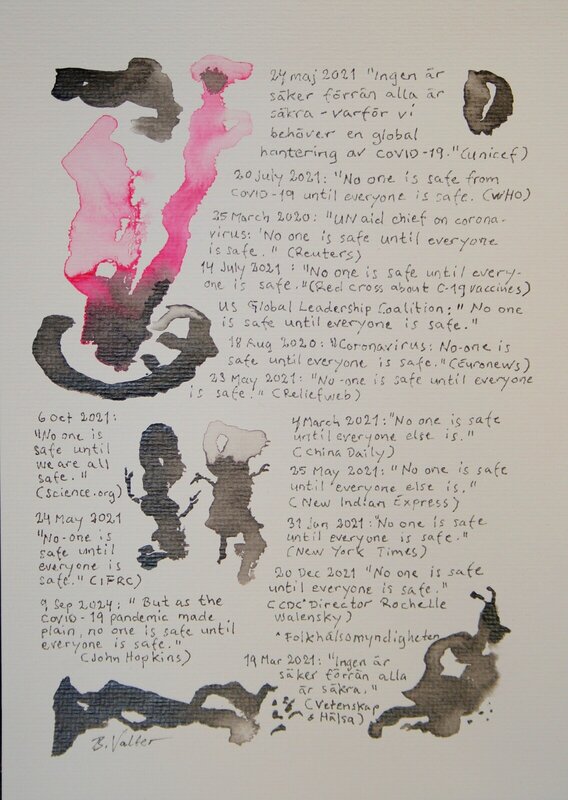 27 maj 2021 "Ingen är
säker förrän alla är
säkra - varför vi
behöver en global
hantering av COVID-19." (unicef)
20 july 2021: "No one is safe from
COVID-19 until everyone is safe. (WHO)
25 March 2020: "UN aid chief on corona-
virus: 'No one is safe until everyone
is safe." (Reuters)
14 July 2021: "No one is safe until every-
one is safe." (Red Cross about C-19 vaccines)
US Global Leadership Coalition: "No one
is safe until everyone is safe."
18 Aug 2020: "Coronavirus: No-one is
safe until everyone is safe." (Euronews)
23 May 2021: "No-one is safe until everyone
is safe." (Reliefweb)
6 Oct 2021:
"No one is
safe until
we are all
safe."
(Science.org)
24 May 2021
"No-one is
safe until
everyone is
safe." (IFRC)
9 Sep 2024: "But as the
Covid-19 pandemic made
plain, no one is safe until
everyone is safe."
(John Hopkins)
4 March 2021: "No one is safe
until everyone else is."
(China Daily)
25 May 2021: "No one is safe
until everyone else is."
(New Indian Express)
31 Jan 2021: "No one is safe
until everyone is safe."
(New York Times)
20 Dec 2021 "No one is safe
until everyone is safe."
(CDC* Director Rochelle
Walensky)
*Folkhälsomyndigheten
19 Mar 2021: "Ingen är
säker förrän alla
är säkra."
(Vetenskap
& Hälsa)
B. Valter